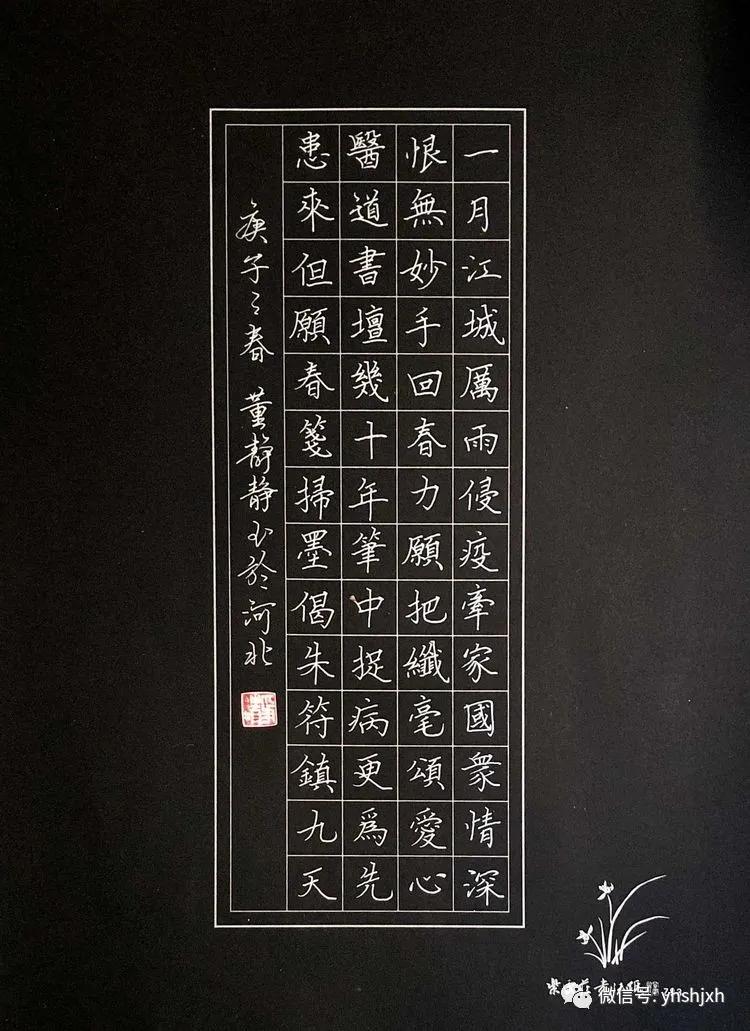 一月江城厲雨侵疫牽家國衆情深
恨無妙手回春力願把纖毫頌愛心
醫道書壇幾十年筆中捉病更爲先
患來但願春箋掃墨偈朱符鎮九天
庚子之春 董靜靜书於河北
微信号: yhshjxh